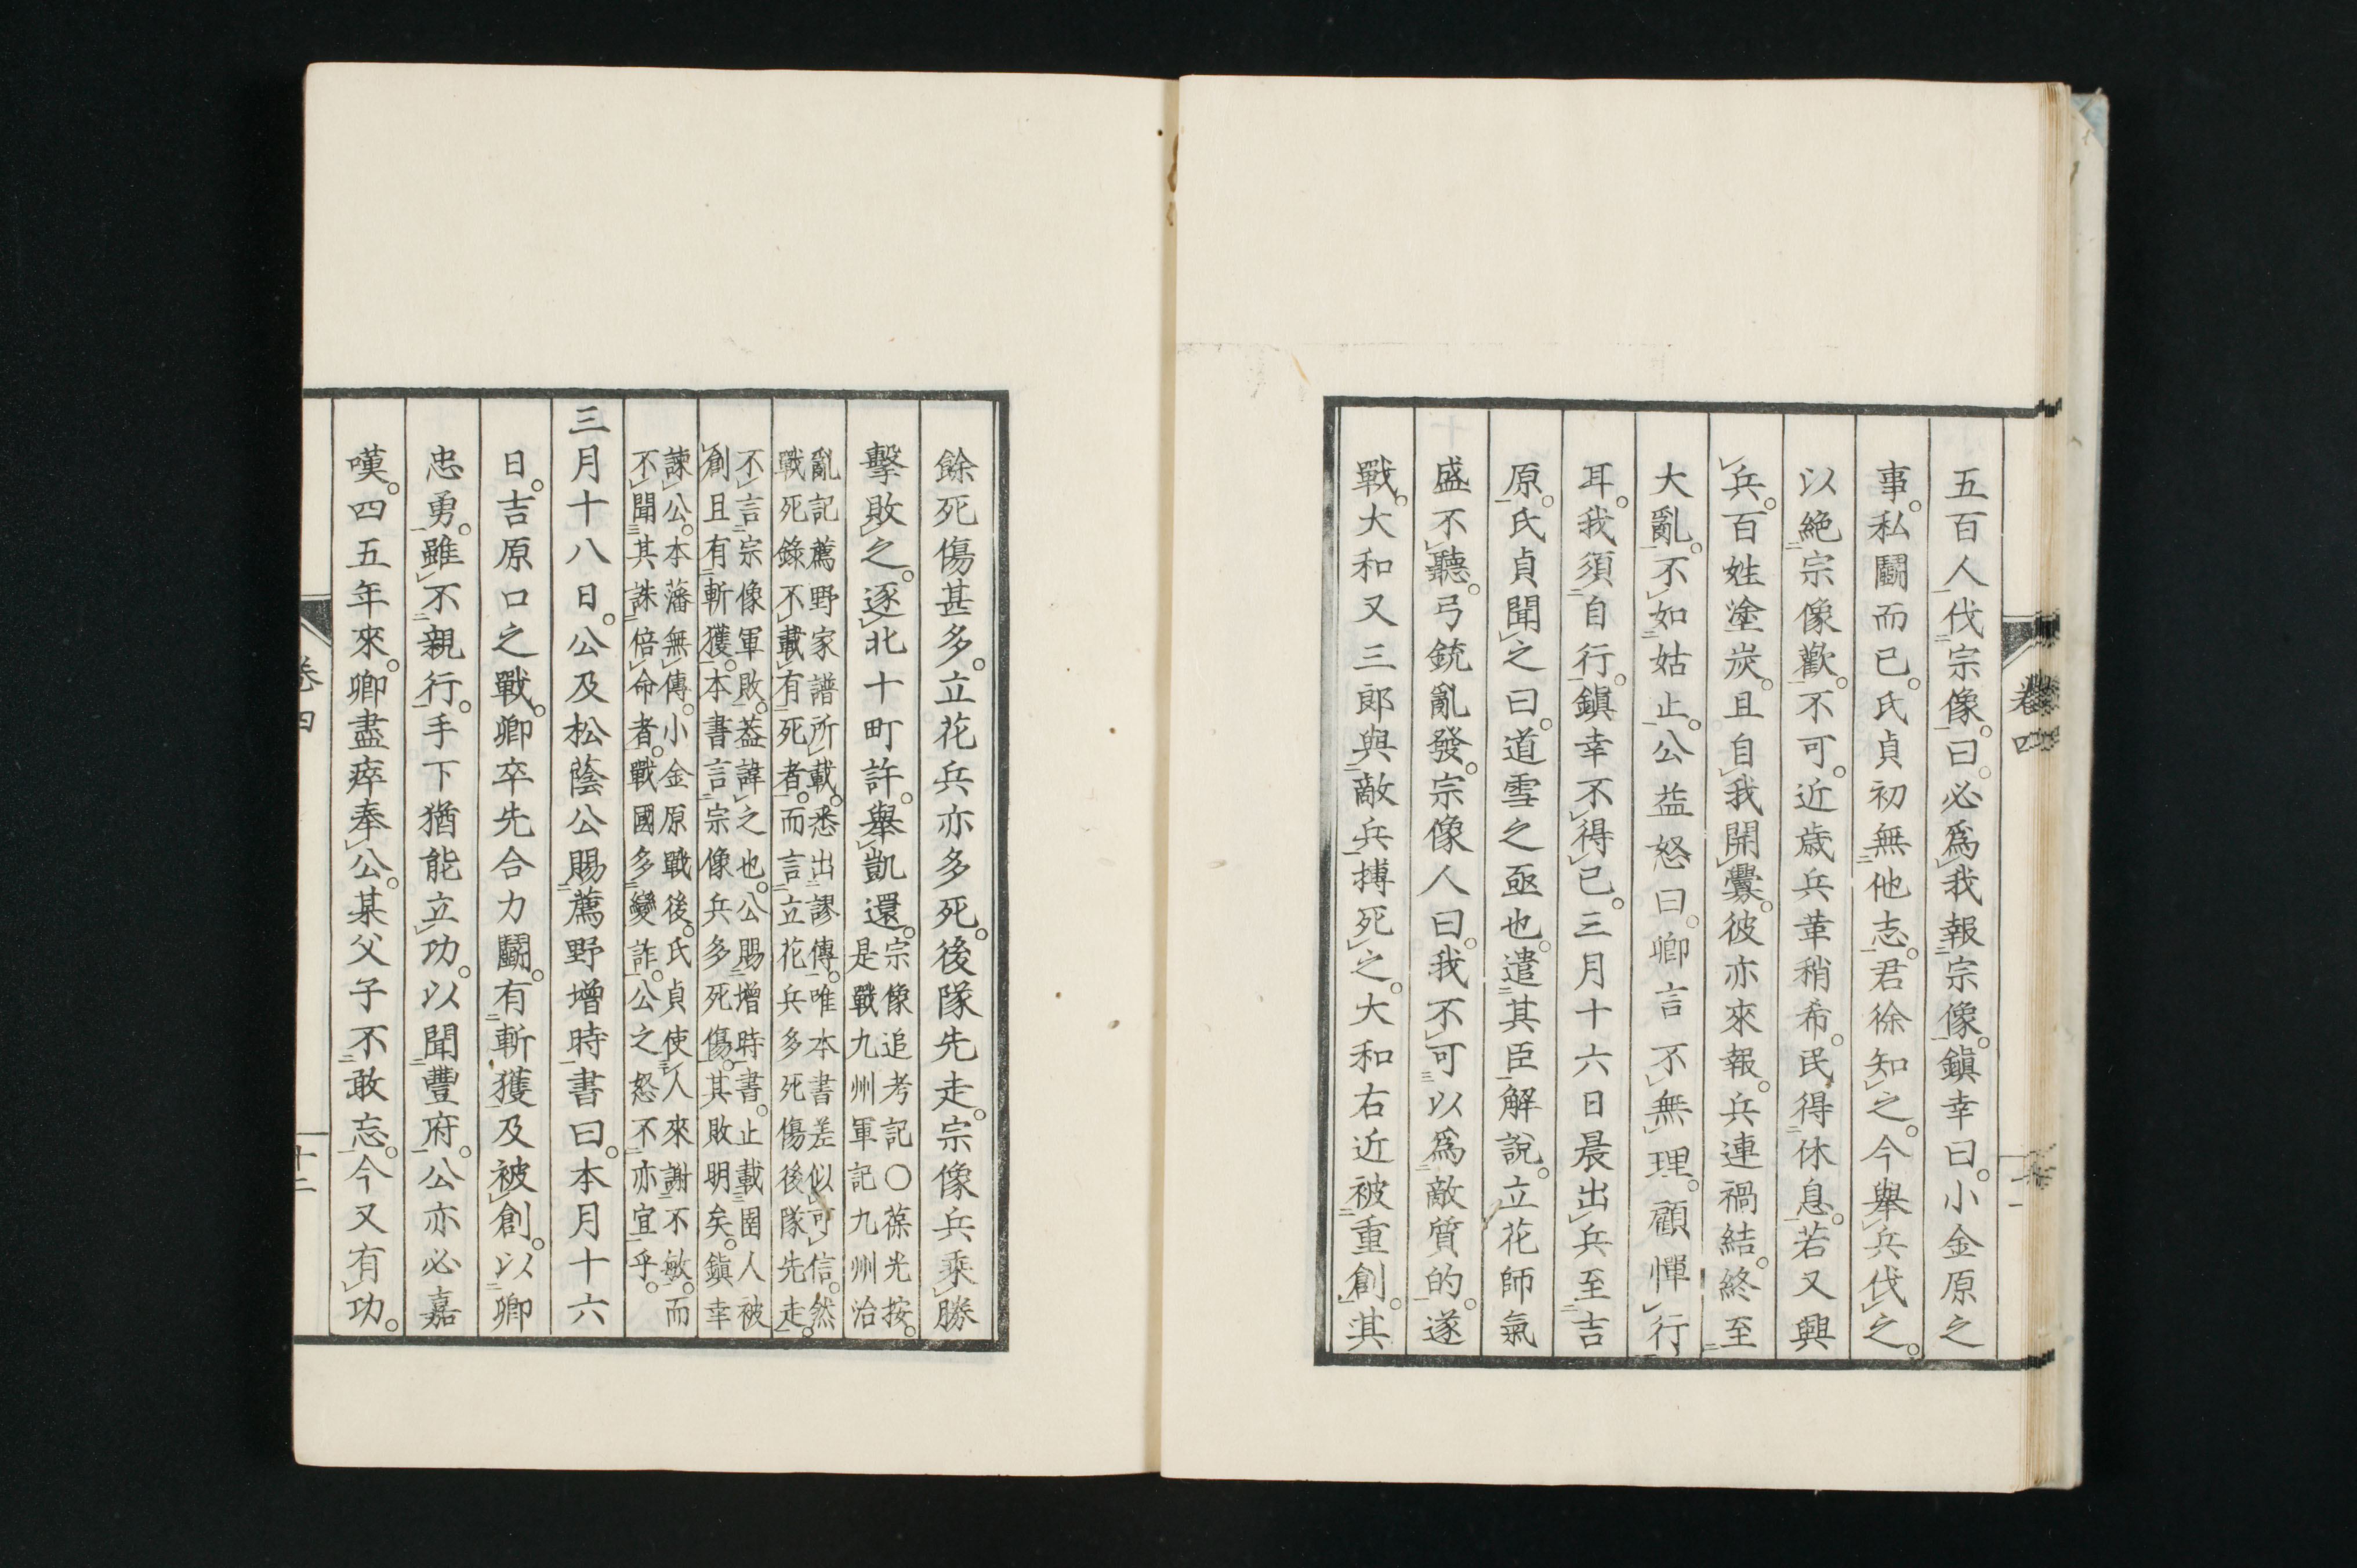 卷四
五百人伐宗像。曰。必爲我報宗像。鎭幸曰。小金原之
事。私鬪而已。氏貞初無他志。君徐知之。今舉兵伐之。
以絶宗像歡。不可。近歳兵革稍希。民得休息。若又興
兵。百姓塗炭。且自我開釁。彼亦來報。兵連禍結。終至
大亂。不如姑止。公益怒曰。卿言不無理。顧憚行
耳。我須自行。鎭幸不得已。三月十六日晨出兵至吉
原。氏貞聞之曰。道雪之亟也。遣其臣解說。立花師氣
盛不聽。弓銃亂發。宗像人曰。我不可以爲敵質的。遂
戰。大和又三郎與敵兵搏死之。大和右近被重創。其
餘死傷甚多。立花兵亦多死。後隊先走。宗像兵乘勝
擊敗之。逐北十町許。舉凱還。宗像追考記〇葆光按。
是戰九州軍記九州治
亂記薦野家譜所載。悉出謬傳。唯本書差似可信。然
戰死錄不載有死者。而言立花兵多死傷後隊先走。
不言宗像軍敗。葢諱之也。公賜增時書。止載圉人被
創且有斬獲。本書言宗像兵多死傷。其敗明矣。鎭幸
諫公。本藩無傳。小金原戰後。氏貞使人來謝不敏。而
不聞其誅倍命者。戰國多變詐。公之怒不亦宜乎。
三月十八日。公及松蔭公賜薦野增時書曰。本月十六
日。吉原口之戰。卿卒先合力鬪。有斬獲及被創。以卿
忠勇。雖不親行。手下猶能立功。以聞豐府。公亦必嘉
嘆。四五年來。卿盡瘁奉公。某父子不敢忘。今又有功。
卷四
十二